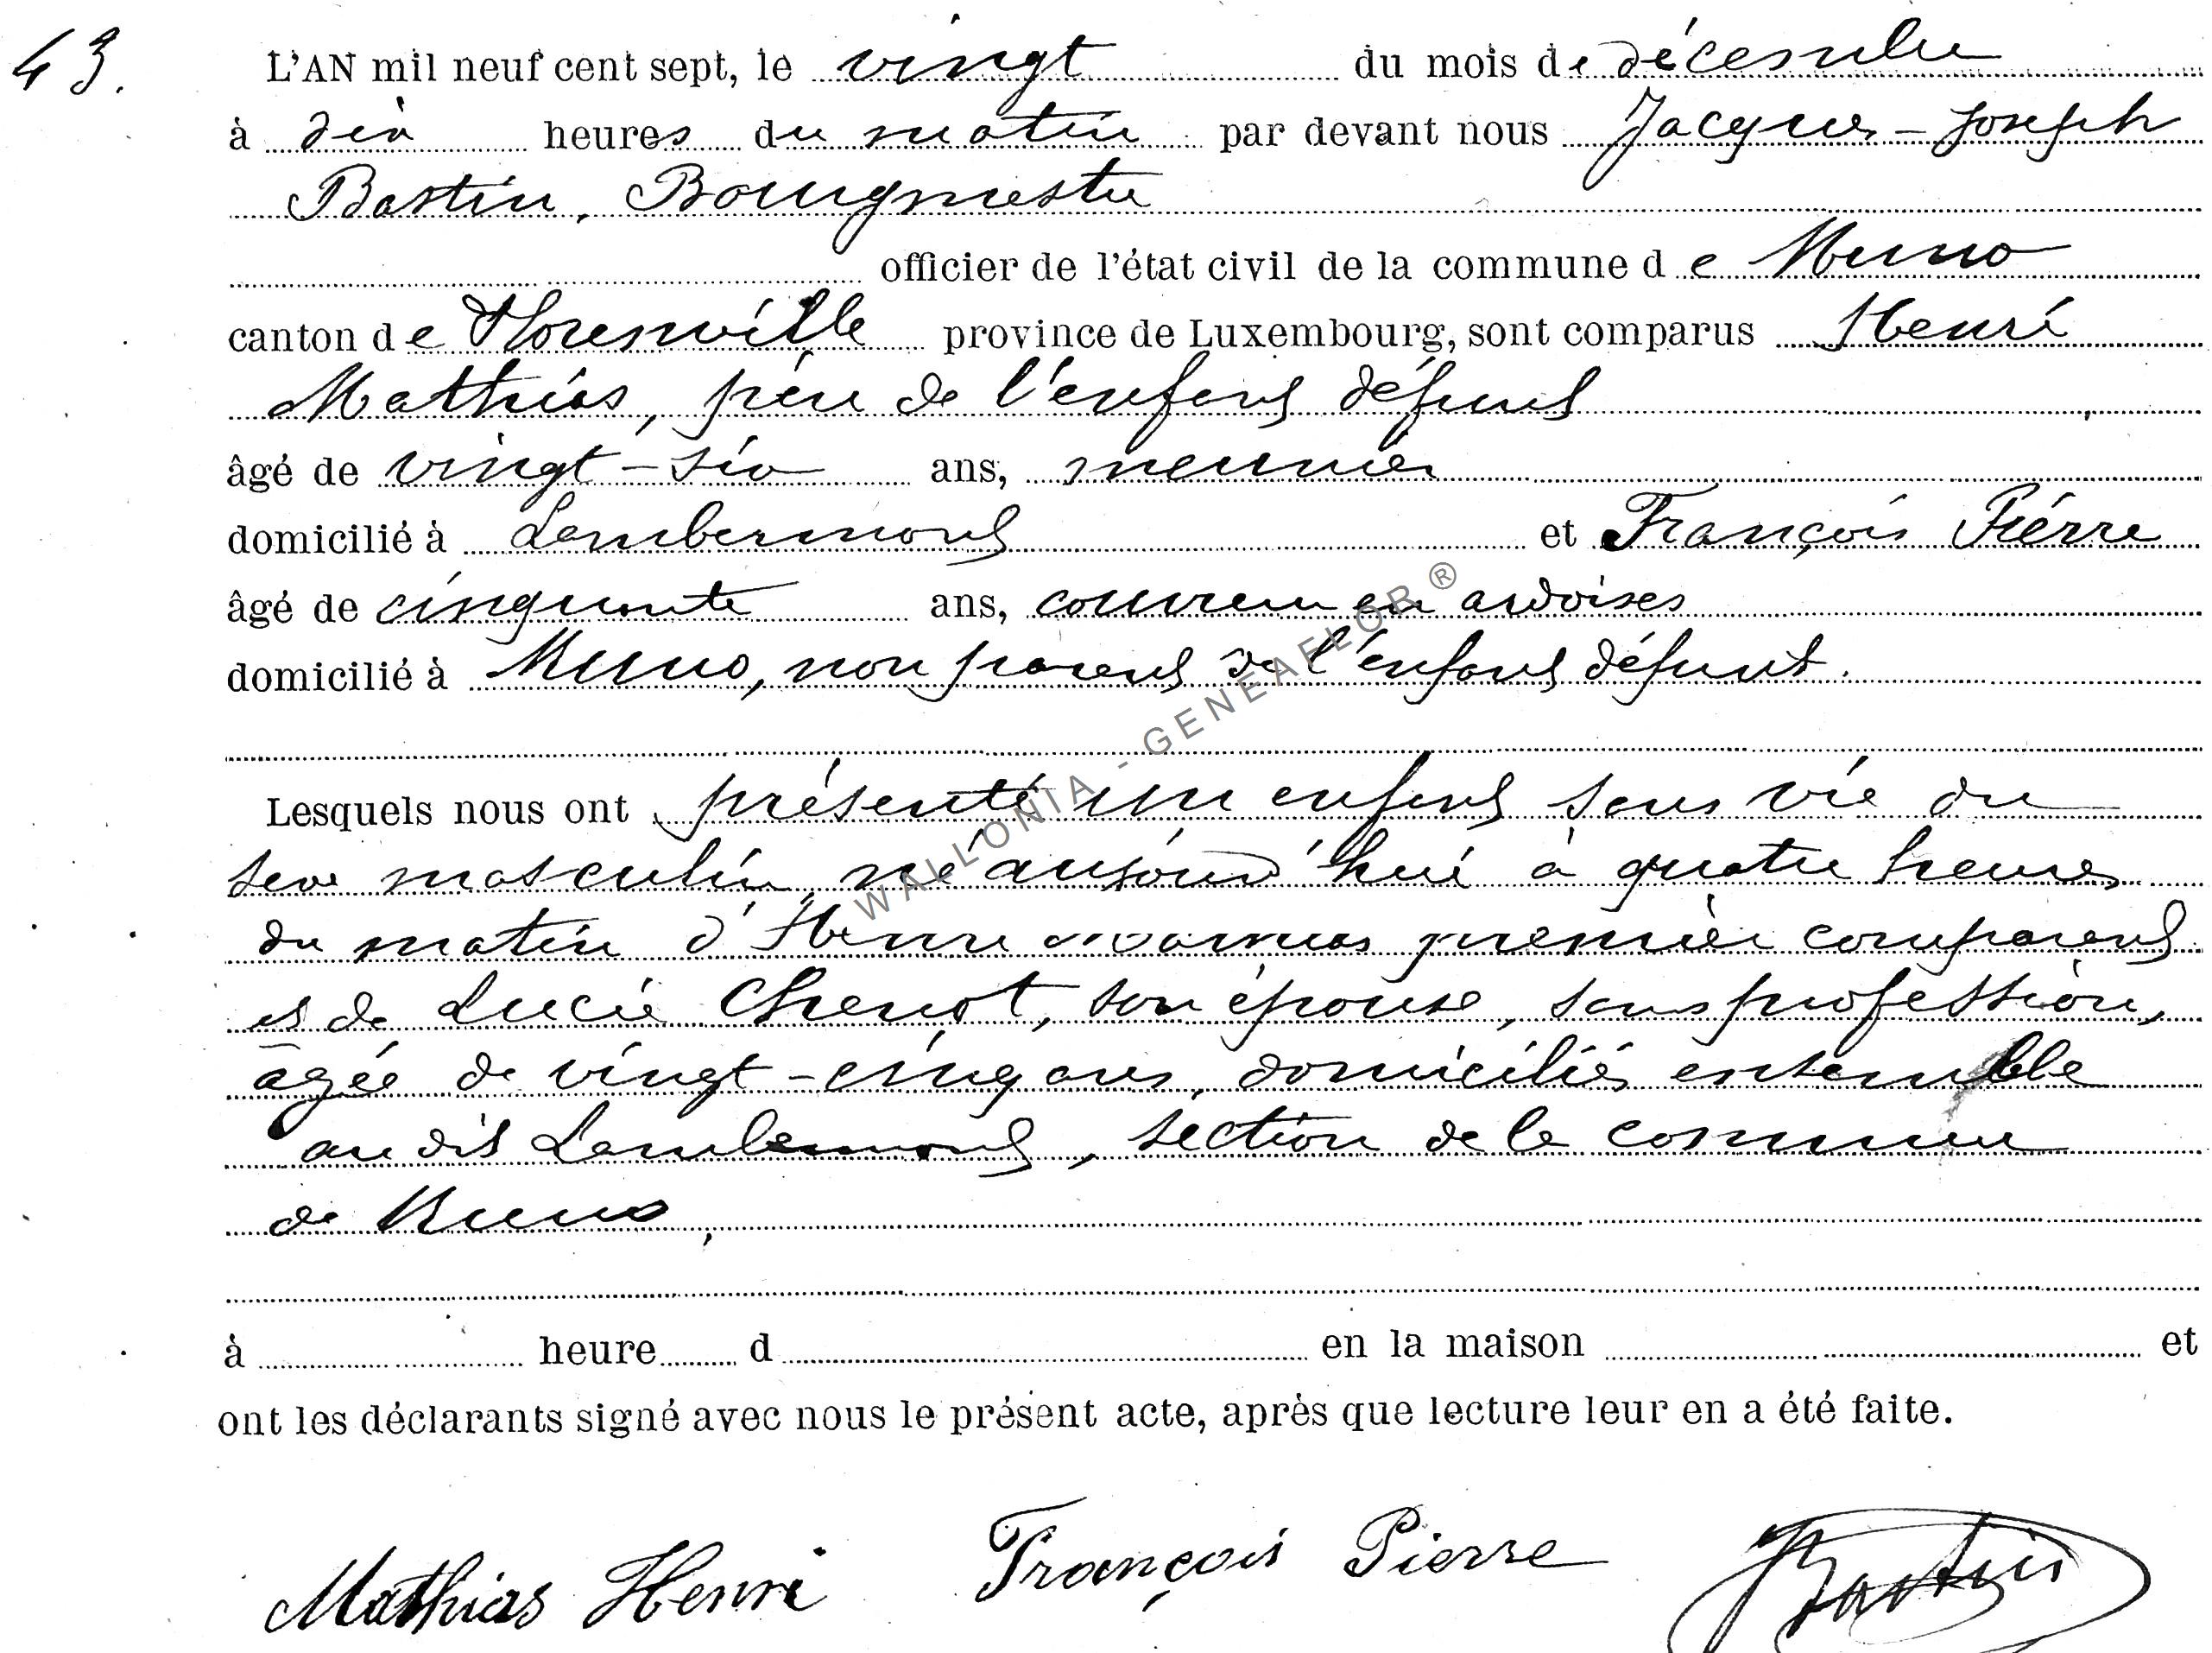 43.
L'AN mil neuf cent sept, le vingt du mois de décembre
à dix heures du matin par devant nous Jacques-Joseph
Bastin, Bourgmestre
officier de l'état civil de la commune de Muno
canton de Florenville province de Luxembourg, sont comparus Henri
Mathias, père de l'enfant défunt
âgé de vingt-six ans, meunier
domicilié à Lambermont et François Pierre
âgé de cinquante ans, couvreur en ardoises
domicilié à Muno, non parent de l'enfant défunt.
Lesquels nous ont présenté un enfant sans vie du
sexe masculin, né aujourd'hui à quatre heures
du matin d'Henri Mathias premier comparant
et de Lucie Chenot, son épouse, sans profession,
âgée de vingt-cinq ans, domiciliés ensemble
au dit Lambermont, section de la commune
de Muno,
à heure d en la maison et
ont les déclarants signé avec nous le présent acte, après que lecture leur en a été faite.
Mathias Henri François Pierre Bastin
WALLONIA - GENEAFLOR ®